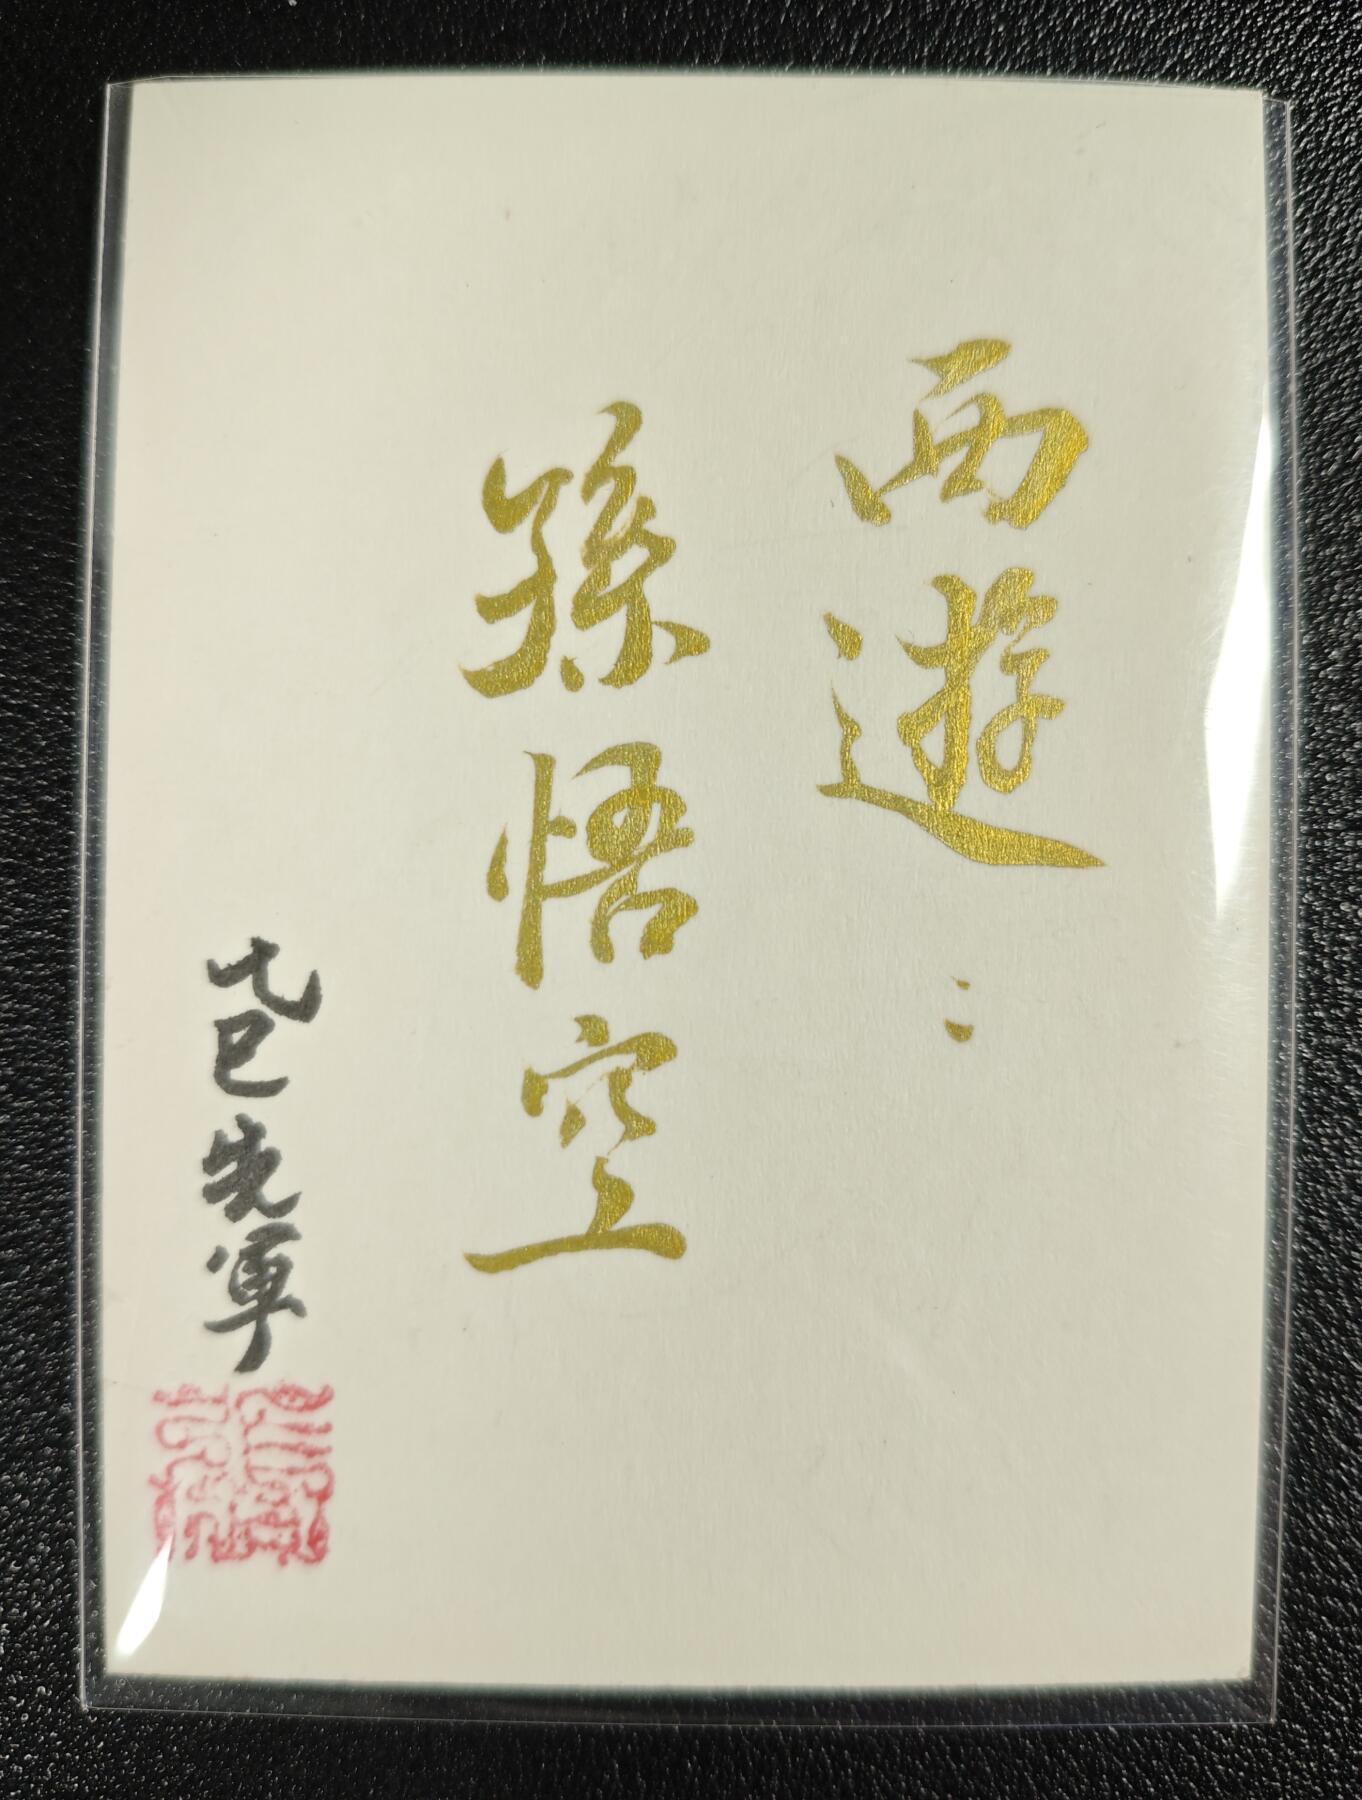 西遊：
孫悟空
乙巳先軍